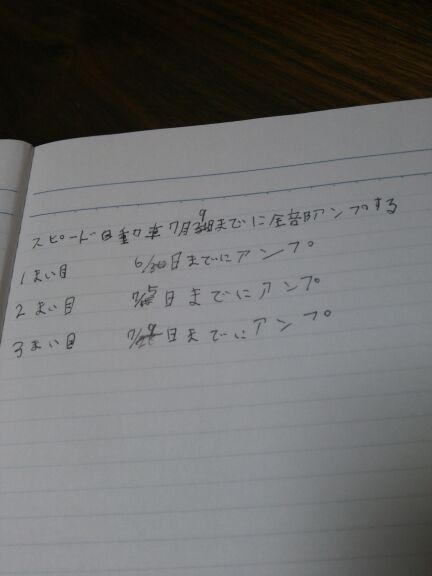 スピード自動車 7月9日までに全部アンプする
1まい目 6/30日までにアンプ
2まい目 7/5日までにアンプ
3まい目 7/9日までにアンプ